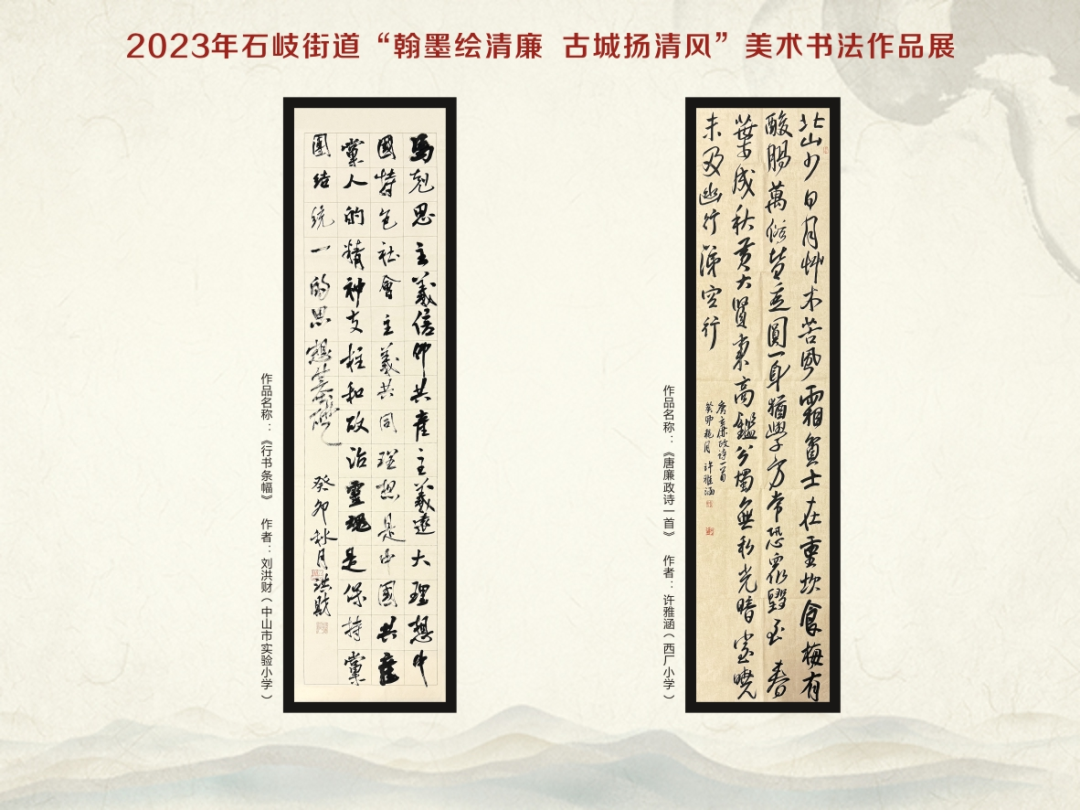 2023年石岐街道“翰墨绘清廉 古城扬清风”美术书法作品展
馬克思主義信仰共產主義遠大理想中
國特色社會主義共同理想是中國共產
黨人的精神支柱和政治靈魂是保持黨
團结统一的思想基礎
癸卯秋月洪财
作品名称：《行书条幅》 作者：刘洪财（中山市实验小学）
北山少日月艸木苦風霜貧士在重坎食梅有
酸腸萬俗皆走圓一身猶學方常恐衆毀至春
葉成秋黃大賢秉高鑑公燭無私光暗室曉
未及幽行涕空行
唐孟廉政诗一首
癸卯桃月 许雅涵
作品名称：《唐廉政诗一首》 作者：许雅涵（西厂小学）